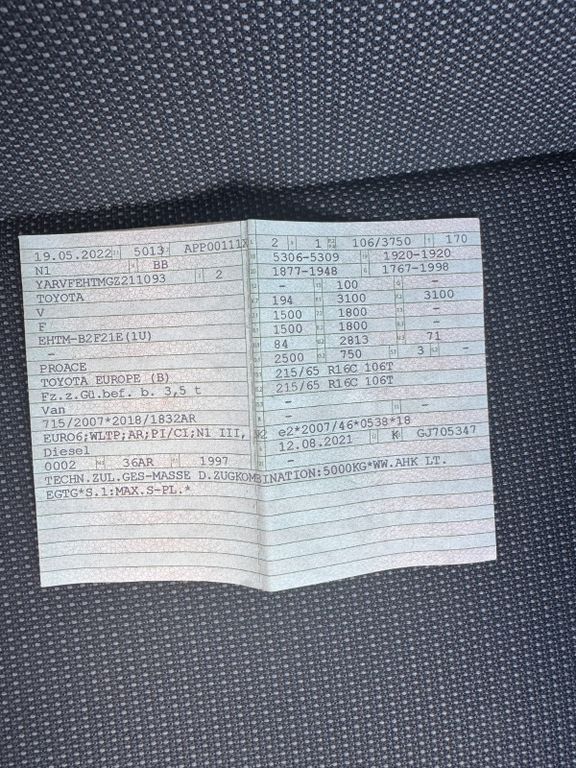 19.05.2022 5013 APP00111X
N1 BB
YARVFEHTMGZ211093 2
TOYOTA
V
F
EHTM-B2F21E(1U)
-
PROACE
TOYOTA EUROPE (B)
Fz.z.Gü.bef. b. 3,5 t
Van
715/2007*2018/1832AR
EURO6;WLTP;AR;PI/CI;N1 III,
Diesel
0002 36AR 1997
2 1 106/3750 170
5306-5309 1920-1920
1877-1948 1767-1998
- 100 -
194 3100 3100
1500 1800 -
1500 1800 -
84 2813 71
2500 750 3 -
215/65 R16C 106T
215/65 R16C 106T
-
- -
e2*2007/46*0538*18
12.08.2021 K GJ705347
-
TECHN.ZUL.GES-MASSE D.ZUGKOMBINATION:5000KG*WW.AHK LT.
EGTG*S.1:MAX.S-PL.*